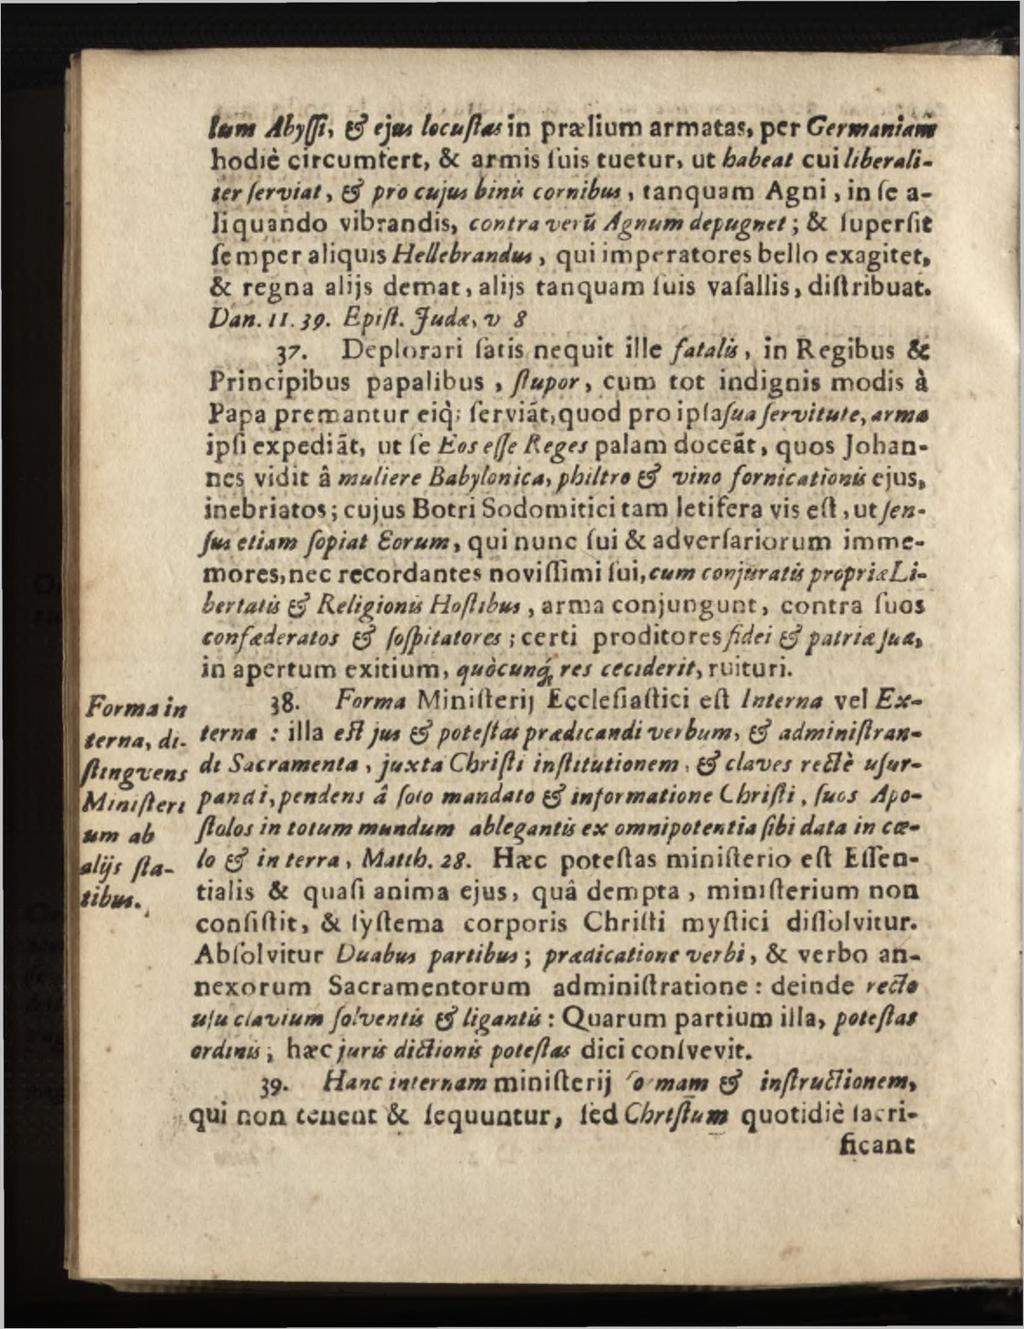 lum Abyſſi, & ejus locuſtas in prælium armatas, per Germaniam
hodiè circumfert, & armis ſuis tuetur, ut habeat cui liberali-
ter ſerviat, & pro cujus binis cornibus, tanquam Agni, in ſe a-
liquando vibrandis, contra verũ Agnum depugnet; & ſuperſit
ſemper aliquis Hellebrandus, qui imperatores bello exagitet,
& regna alijs demat, alijs tanquam ſuis vaſallis, diſtribuat.
Dan. 11. 39. Epiſt. Judæ, v 8
37. Deplorari ſatis nequit ille fatalis, in Regibus &
Principibus papalibus, ſtupor, cum tot indignis modis à
Papa premantur eiq; ſerviãt, quod pro ipſa ſua ſervitute, arma
ipſi expediãt, ut ſe Eos eſſe Reges palam doceãt, quos Johan-
nes vidit â muliere Babylonica, philtro & vino fornicationis ejus,
inebriatos; cujus Botri Sodomitici tam letifera vis eſt, ut ſen-
ſus etiam ſopiat Eorum, qui nunc ſui & adverſariorum imme-
mores, nec recordantes noviſſimi ſui, cum conjuratis propriæ Li-
bertatis & Religionis Hoſtibus, arma conjungunt, contra ſuos
confæderatos & ſoſpitatores; certi proditores fidei & patriæ ſuæ,
in apertum exitium, quòcunq; res ceciderit, ruituri.
Forma in
terna, di-
ſtingvens
Miniſteri
um ab
alijs ſta-
tibus.
38. Forma Miniſterij Eccleſiaſtici eſt Interna vel Ex-
terna : illa eſt jus & poteſtas prædicandi verbum, & adminiſtran-
di Sacramenta, juxta Chriſti inſtitutionem, & claves rectè uſur-
pandi, pendens â ſolo mandato & informatione Chriſti, ſuos Apo-
ſtolos in totum mundum ablegantis ex omnipotentia ſibi data in cœ-
lo & in terra, Matth. 28. Hæc poteſtas miniſterio eſt Eſſen-
tialis & quaſi anima ejus, quâ dempta, miniſterium non
conſiſtit, & ſyſtema corporis Chriſti myſtici diſſolvitur.
Abſolvitur Duabus partibus; prædicatione verbi, & verbo an-
nexorum Sacramentorum adminiſtratione : deinde recto
uſu clavium ſolventis & ligantis : Quarum partium illa, poteſtas
ordinis; hæc juris dictionis poteſtas dici conſvevit.
39. Hanc internam miniſterij & inſtructionem,
qui non tenent & ſequuntur, ſed Chriſtum quotidiè ſacri-
ficant